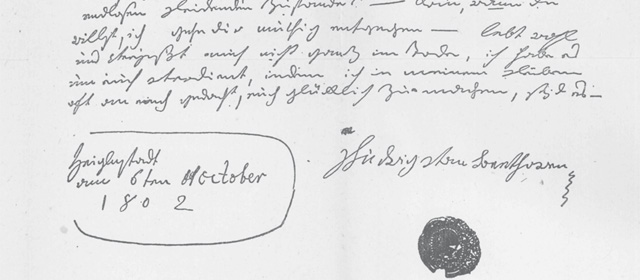 endlosen Leidenden Zustande? — Komm, wann du
willst, ich gehe dir muthig entgegen — lebt wohl
und Vergeßt mich nicht ganz im Tode, ich habe es
um euch verdient, indem ich in meinem Leben
oft an euch gedacht, euch glücklich zu machen, seyd es —
Heiglnstadt
am 6ten October
1802
Ludwig van Beethoven